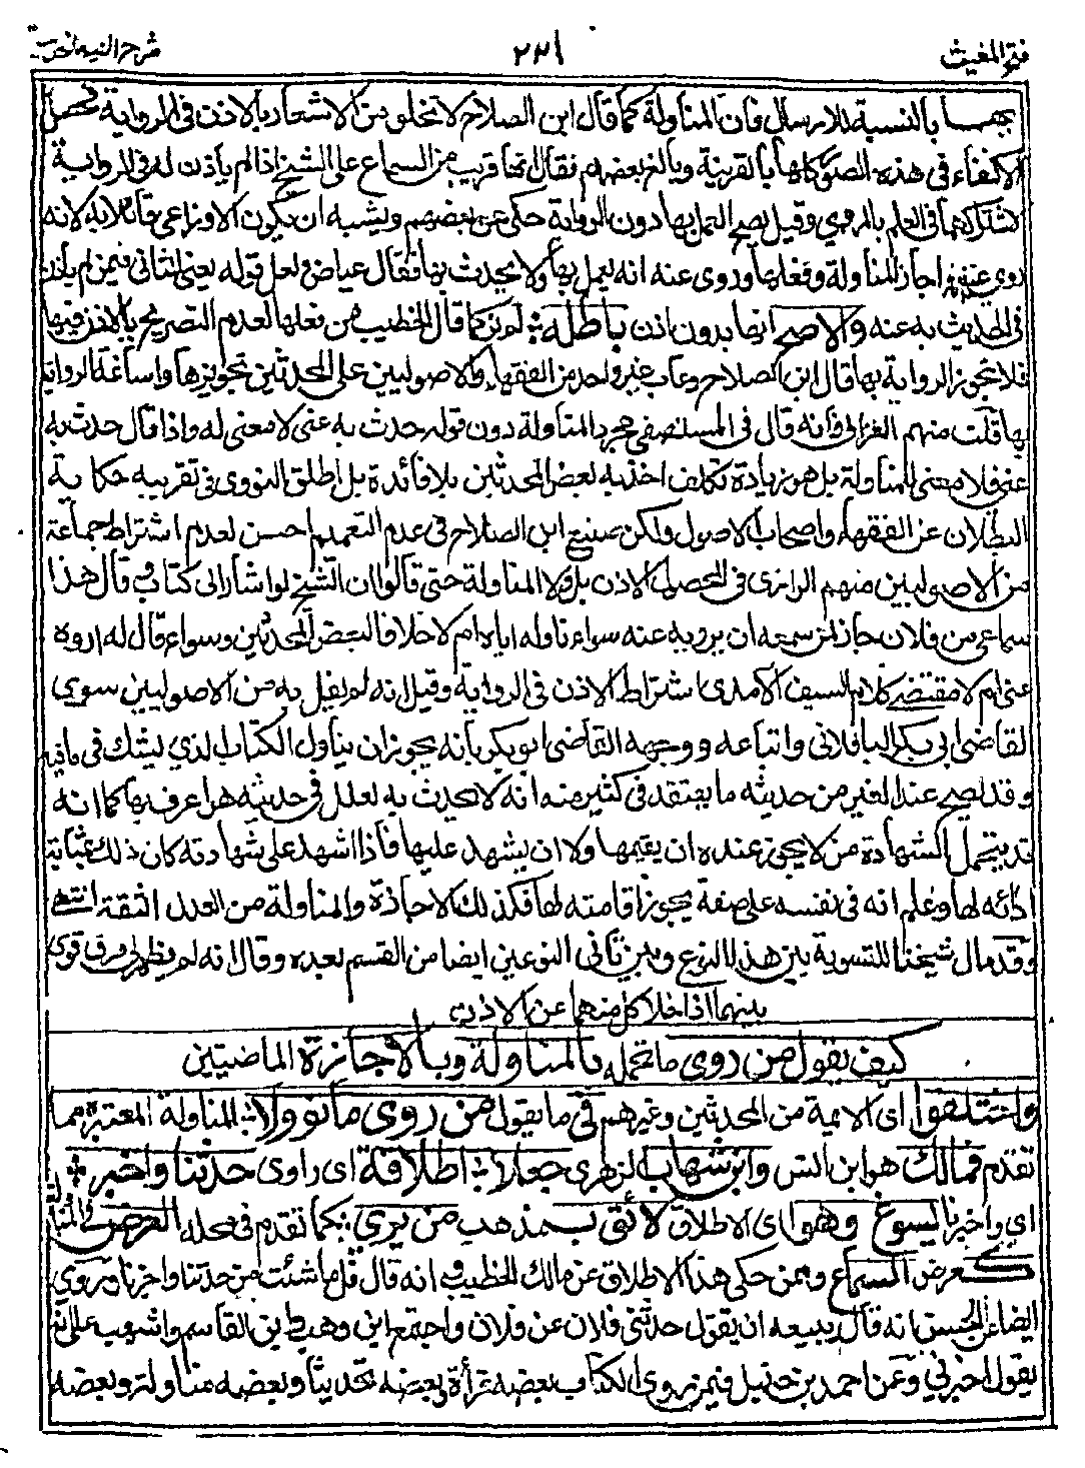 فتح المغيث ٢٢١ شرح الفية الحديث
بهما بالنسبة للارسال فان المناولة كما قال ابن الصلاح لا تخلو من الاشعار بالاذن فى الرواية فحصل
الاكتفاء فى هذه الصور كلها بالقرينة وبالغ بعضهم فقال انها قريب من السماع على الشيخ اذا لم يأذن له فى الرواية
لاشتراكهما فى العلم بالمروي وقيل يصح العمل بها دون الرواية حكى عن بعضهم ويشبه ان يكون الاوزاعى قائلا به لانه
روى عنه اجاز المناولة وفعلها وروى عنه انه يعمل بها ولا يحدث بها فقال عياض لعل قوله يعنى الثانى فيمن لم يأذن
فى الحديث به عنه والاصح انها بدون اذن باطله لم نر كما قال الخطيب من فعلها لعدم التصريح بالاذن فيها
فلا تجوز الرواية بها قال ابن الصلاح وعاب غير واحد من الفقهاء والاصوليين على المحدثين تجويزها واساغة الرواية
بها قلت منهم الغزالى فانه قال فى المستصفى مجرد المناولة دون قوله حدث به عنى لا معنى له واذا قال حدث به
عنى فلا معنى للمناولة بل هو زيادة تكلف اخذ به بعض المحدثين بلا فائدة بل اطلق النووى فى تقريبه حكاية
البطلان عن الفقهاء واصحاب الاصول ولكن صنيع ابن الصلاح فى عدم التعميم احسن لعدم اشتراط جماعة
من الاصوليين منهم الرازى فى المحصول الاذن بل ولا المناولة حتى قالوا ان الشيخ لو اشار الى كتاب وقال هذا
سماعى من فلان جاز لمن سمعه ان يرويه عنه سواء ناوله اياه ام لا خلافا لبعض المحدثين وسواء قال له اروه
عنى ام لا مقتضى كلام السيف الآمدى اشتراط الاذن فى الرواية وقيل انه لم يقل به من الاصوليين سوى
القاضى ابى بكر الباقلانى واتباعه ووجهه القاضى ابو بكر بانه يجوز ان يناول الكتاب الذي يشك فى ما فيه
وقد يصح عند الغير من حديثه ما يعتقد فى كثير منه انه لا يحدث به لعلل فى حديثه هو اعرف بها كما انه
قد يتحمل الشهادة من لا يجوز عنده ان يقيمها ولا ان يشهد عليها فاذا اشهد على شهادته كان ذلك بمثابة
ادائه لها وعلم انه فى نفسه على صفة يجوز اقامته لها فكذلك الاجازة والمناولة من العدل الثقة انتهى
وقد مال شيخنا للتسوية بين هذا النوع وبين ثانى النوعين ايضا من القسم بعده وقال انه لم يظهر لى فرق قوى
بينهما اذا خلا كل منهما عن الاذن
كيف يقول من روى ما تحمله بالمناولة وبالاجازة الماضيتين
واختلفوا اى الائمة من المحدثين وغيرهم فى ما يقول من روى ما نوولا بالمناولة المعتبرة مما
تقدم فمالك هو ابن انس وابن شهاب الزهرى جعلا اطلاقه اى راوى حدثنا واخبر
اى واخبرنا يسوغ وهو اى الاطلاق لائق بمذهب من يرى كما تقدم فى محله العرض فى المناولة
كعرض السماع وممن حكى هذا الاطلاق عن مالك الخطيب وانه قال قل ما شئت من حدثنا واخبرنا وروي
ايضا عن الحسن انه قال يسعه ان يقول حدثنى فلان عن فلان واجتمع ابن وهب وابن القاسم واشهب على انه
يقول اخبرنى وعن احمد بن حنبل فيمن روى الكتاب بعضه قرأة وبعضه تحديثا وبعضه مناولة وبعضه